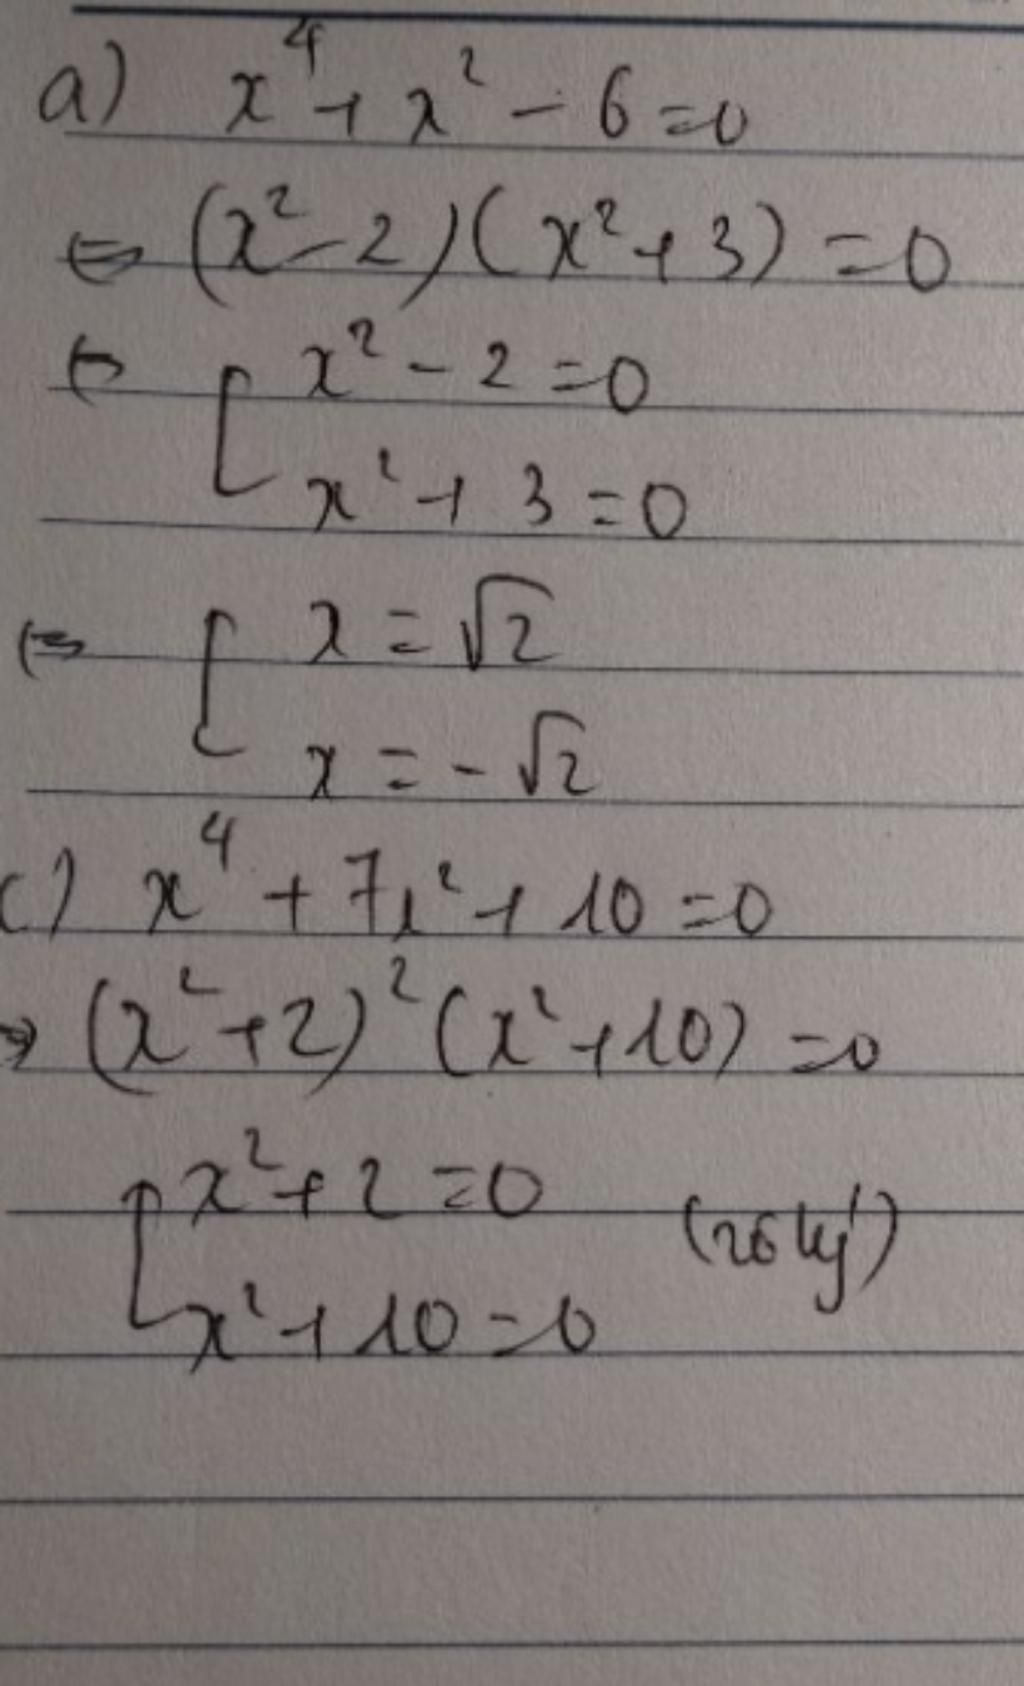 a) x⁴ + x² - 6 = 0
⇔ (x² - 2)(x² + 3) = 0
⇔ [ x² - 2 = 0
x² + 3 = 0
⇔ [ x = √2
x = -√2
c) x⁴ + 7x² + 10 = 0
⇔ (x² + 2)² (x² + 10) = 0
[ x² + 2 = 0
x² + 10 = 0